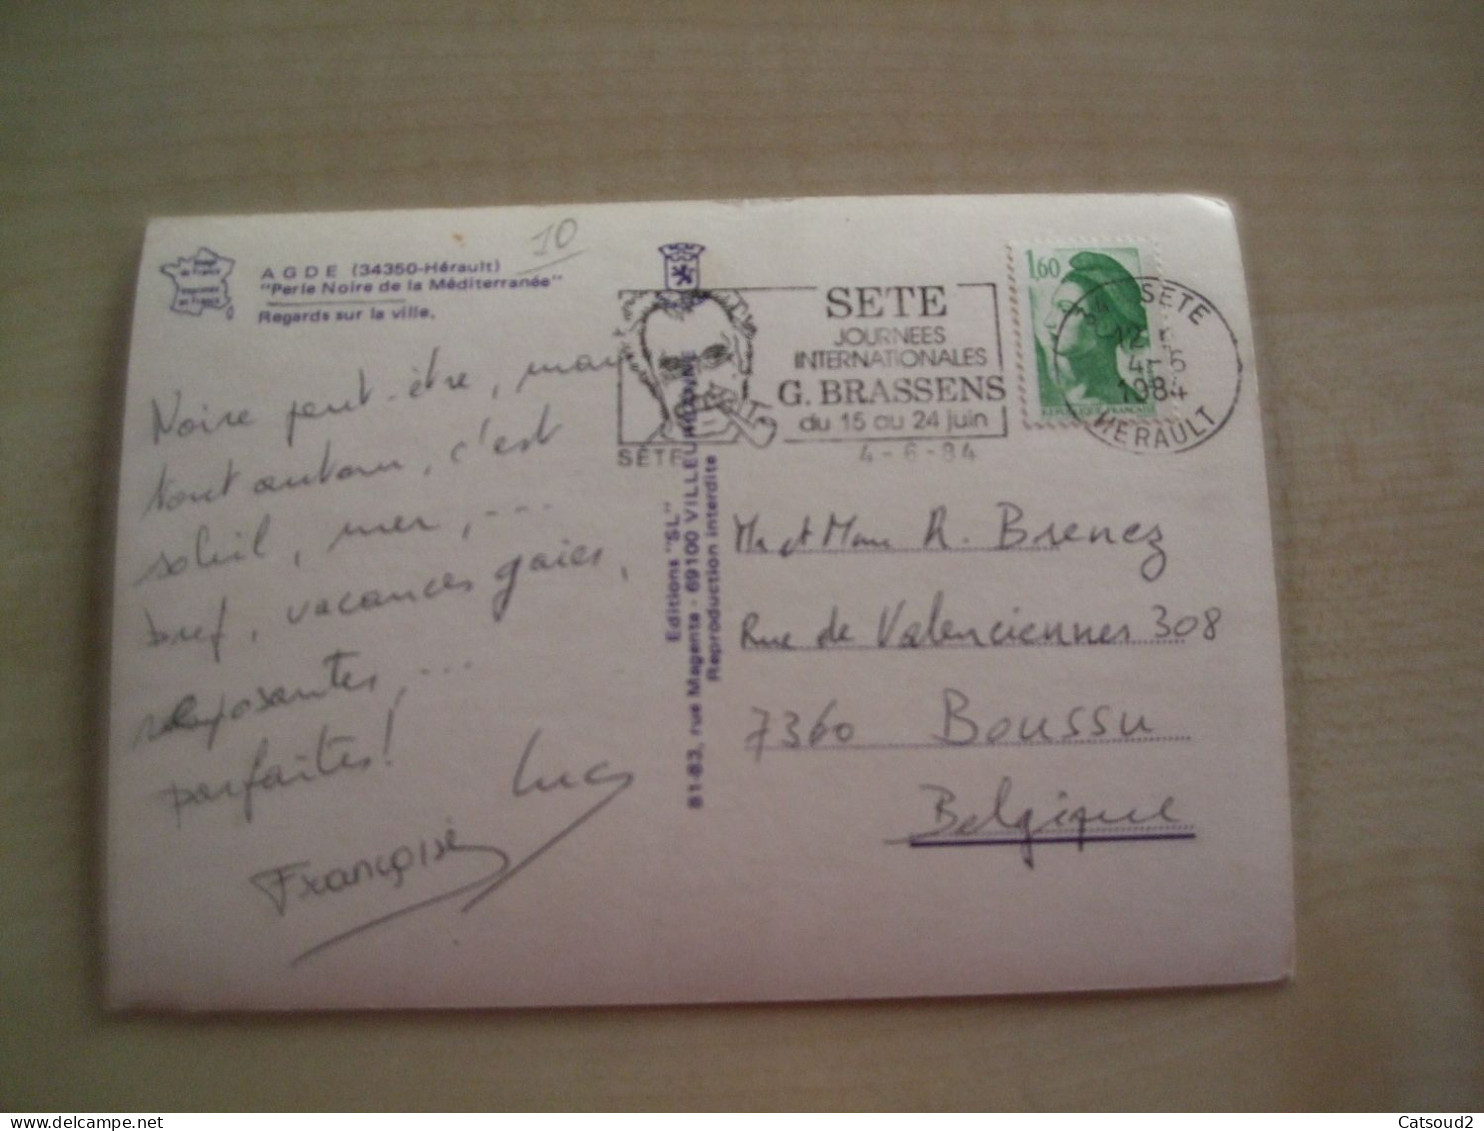 AGDE (34350-Hérault)
"Perle Noire de la Méditerranée"
Regards sur la ville.
10
Noire peut-être, mais
tout autour, c'est
soleil, mer, ...
bref, vacances gaies,
reposantes, ...
parfaites!
Luc
Françoise
SÈTE
SETE
JOURNEES
INTERNATIONALES
G. BRASSENS
du 15 au 24 juin
4-6-84
1,60
34 SETE
12 H
4-6
1984
HERAULT
Editions "SL"
81-83, rue Magenta - 69100 VILLEURBANNE
Reproduction interdite
Mr et Mme R. Brenez
Rue de Valenciennes 308
7360 Boussu
Belgique
Catsoud2